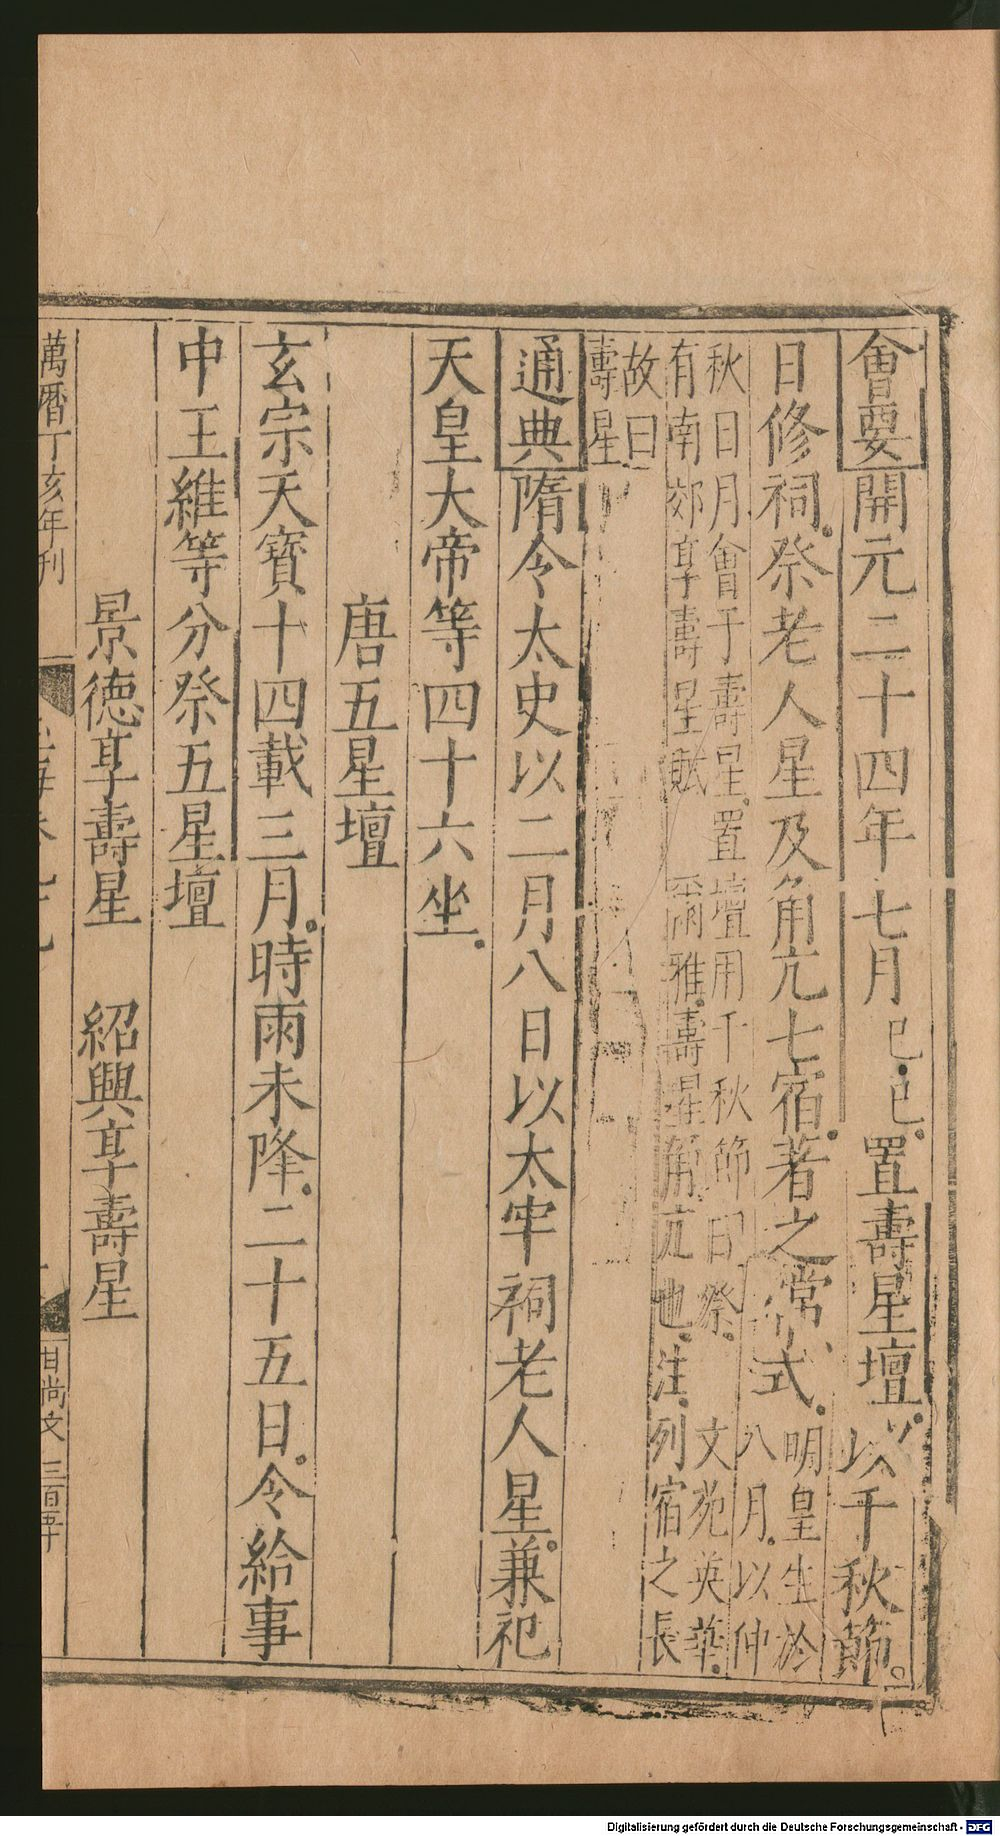 會要開元二十四年七月己巳置壽星壇以千秋節
日修祠祭老人星及角亢七宿著之常式明皇生於八月以仲
秋日月會于壽星置壇用千秋節日祭文苑英華
有南郊享壽星賦 爾雅壽星角亢也注列宿之長
故曰
壽星
通典隋令太史以二月八日以太牢祠老人星兼祀
天皇大帝等四十六坐
唐五星壇
玄宗天寶十四載三月時雨未降二十五日令給事
中王維等分祭五星壇
景德享壽星 紹興享壽星
萬曆丁亥年刊
甘尚文 三百五十
Digitalisierung gefördert durch die Deutsche Forschungsgemeinschaft - DFG